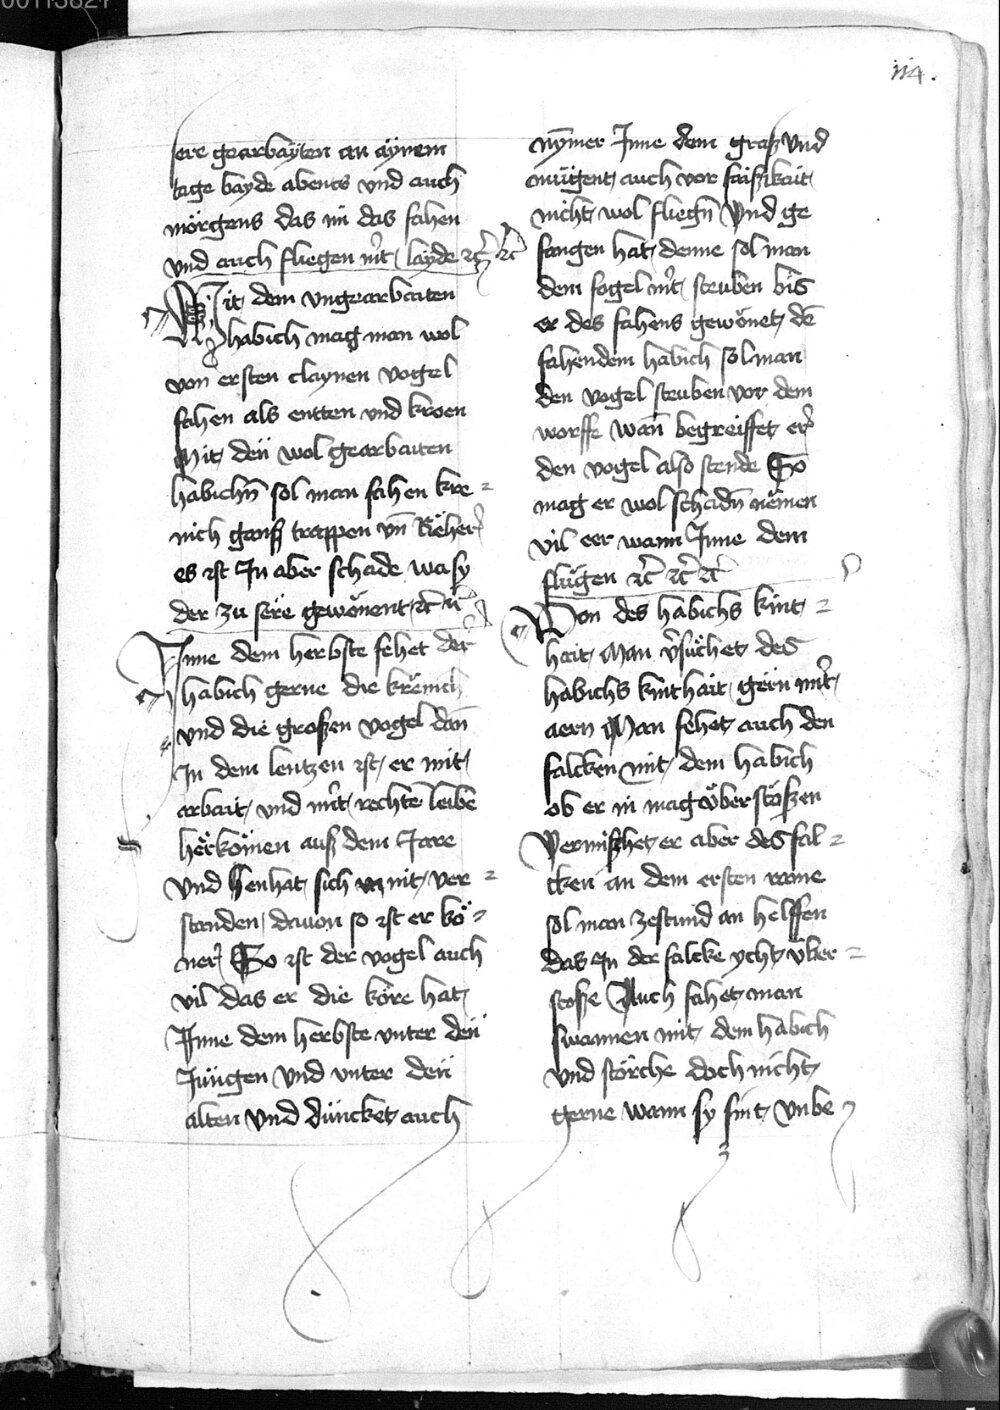 114.
sere gearbayten an aynem
tage bayde abents vnd auch
mörgens das im das fahen
vnd auch fliegen nit layde ⁊c̃ ⁊c̃
Mit dem vngearbaiten
habich mag man wol
von ersten claynen vogel
fahen als entten vnd kroen
Mit den wol gearbaiten
habichn̄ sol man fahen kre-
nich ganß trappen vn̄ Räher
es ist In aber schade wa sy
der zu sere gewönent ⁊c̃
Inne dem herbste fehet der
habich gerne die krënich
vnd die großen vogel dan̄
In dem lentzen ist er mit
arbait vnd mit rechte leibe
herkömen auß dem Jare
vnd henhat sich nit ver-
standen, davon so ist er kö-
ner So ist der vogel auch
vil das er die köre hat
Inne dem herbste vnter den
Jungen vnd vnter den
alten vnd düncket auch
nymer Inne dem graß vnd
mügent auch vor faißikait
nicht wol fliegn̄ Vnd ge
fangen hat denne sol man
dem fogel mit steuben bis
er des fahens gewönet de
fahendem habich sol man
den vogel steuben vor dem
worffe wan̄ begreiffet er
den vogel also stende So
mag er wol schadn̄ nëmen
vil eer wann Inne dem
flügen ⁊c̃ ⁊c̃ ⁊c̃
Von des habichs kint-
hait, Man v̾süchet des
habichs kinthait gern mit
aern Man fehet auch den
falcken mit dem habich
ob er in mag überstößen
Vermischet er aber des fal-
cken an dem ersten rame
sol man zestund an helffen
das In der falcke ycht über-
stoße Auch fahet man
swannen mit dem habich
vnd störche doch nicht
gerne wann sy sint vnbe